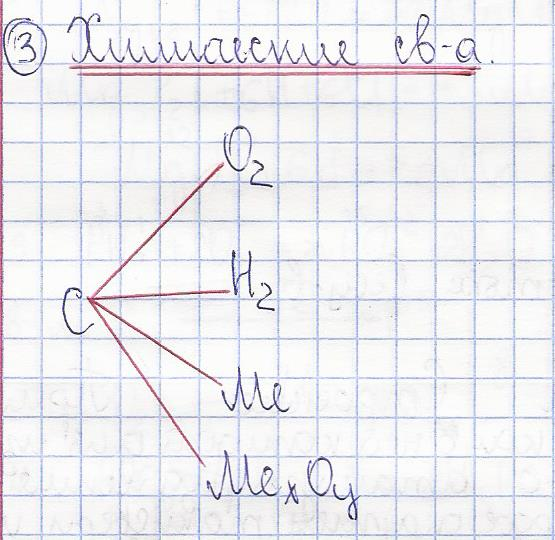 ③ Химические св-а.
O₂
H₂
C
Me
MeₓOᵧ